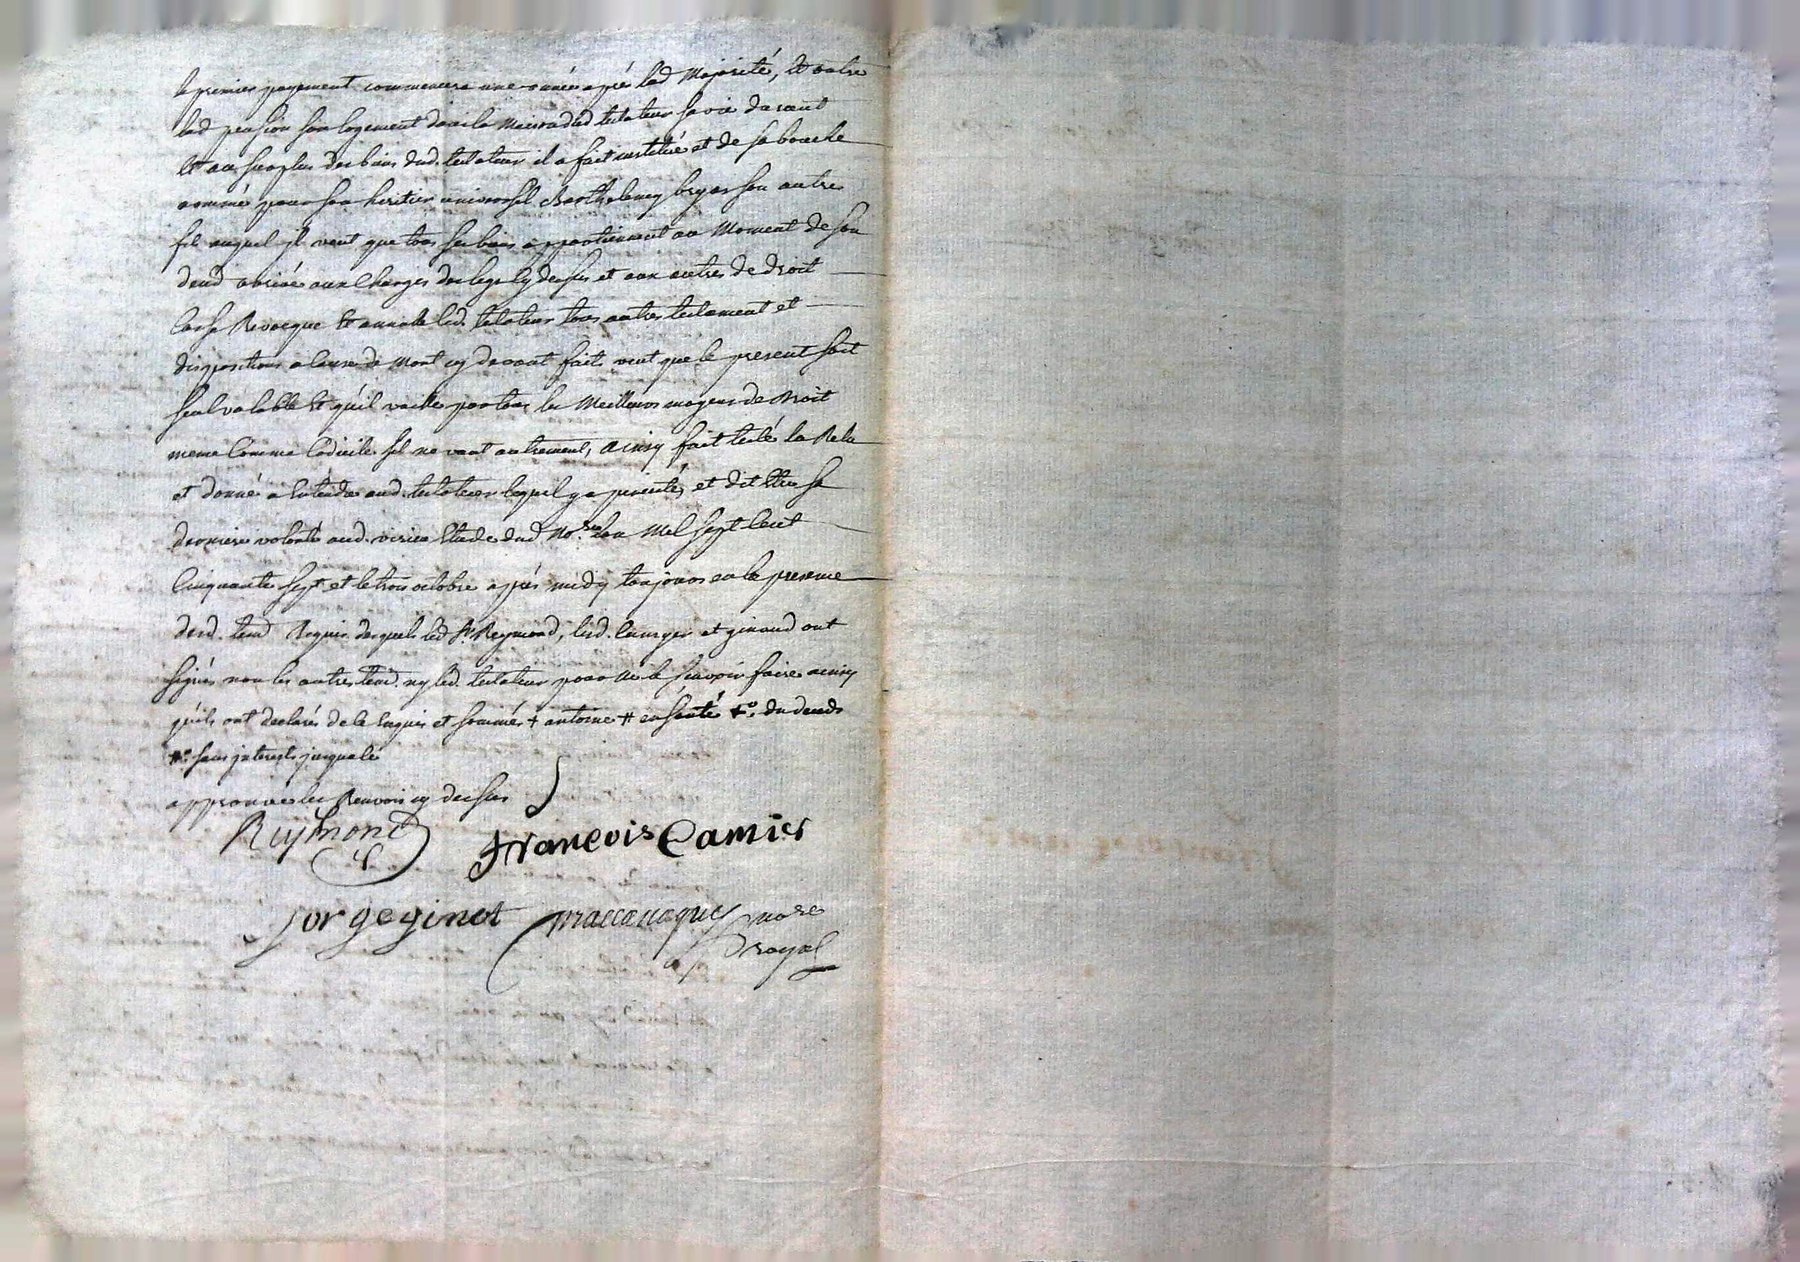 le premier payement commencera une année apré lad Majorité, et outre
lad pension son logement dans la Maison dud testateur sa vie durant
Et au surplus des biens dud. testateur il a fait institué et de sa bouche
nommé pour son heritier universel Barthelemy bryas son autre
fils auquel il veut que tous ses biens appartiennent au Moment de son
deced arrivé aux Charges des legs cy dessus et aux autres de droit
Casse Revocque Et annulle led. testateur tous autres testament et
dispositions a cause de Mort cy devant faits veut que le present soit
seul valable Et qu'il vaille par tous les Meilleurs moyens de droit
meme Comme Codicile sil ne vaut autrement, ainsy fait leté la Relu
et donné a Entendre aud. testateur lequel y a percisté, et dit Etre sa
derniere volonté aud. Etude dud No.re L'an Mil Sept Cent
Cinquante Sept et le trois octobre aprés midy toujours en la presence
desd. tem Requis desquels led Sr Reymond, lesd. et ginaud ont
signés non les autres tem. ny led. testateur pour ne le sçavoir faire ainsy
quils ont declarés de ce Enquis et sommés + antoine # en santé +o. du deceds
#o sans interests jusqualé
approuvé les Renvois cy dessus
Reymond
françois Camier
Jorge ginot
nore
royal